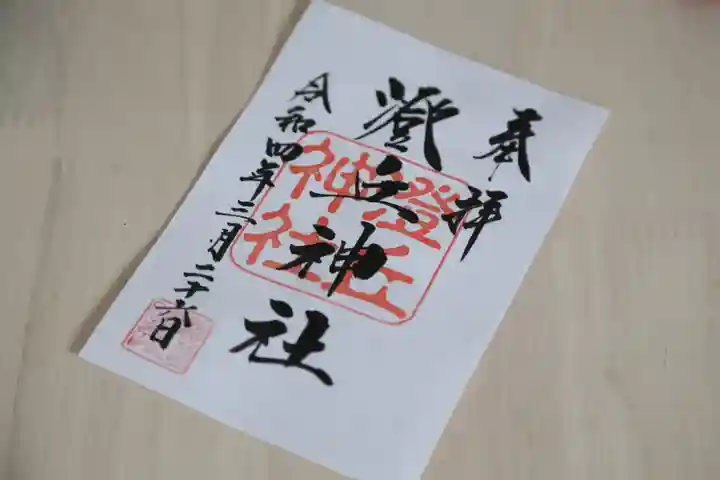 奉拝
澄丘神社
令和四年三月二十六日
澄丘
神社